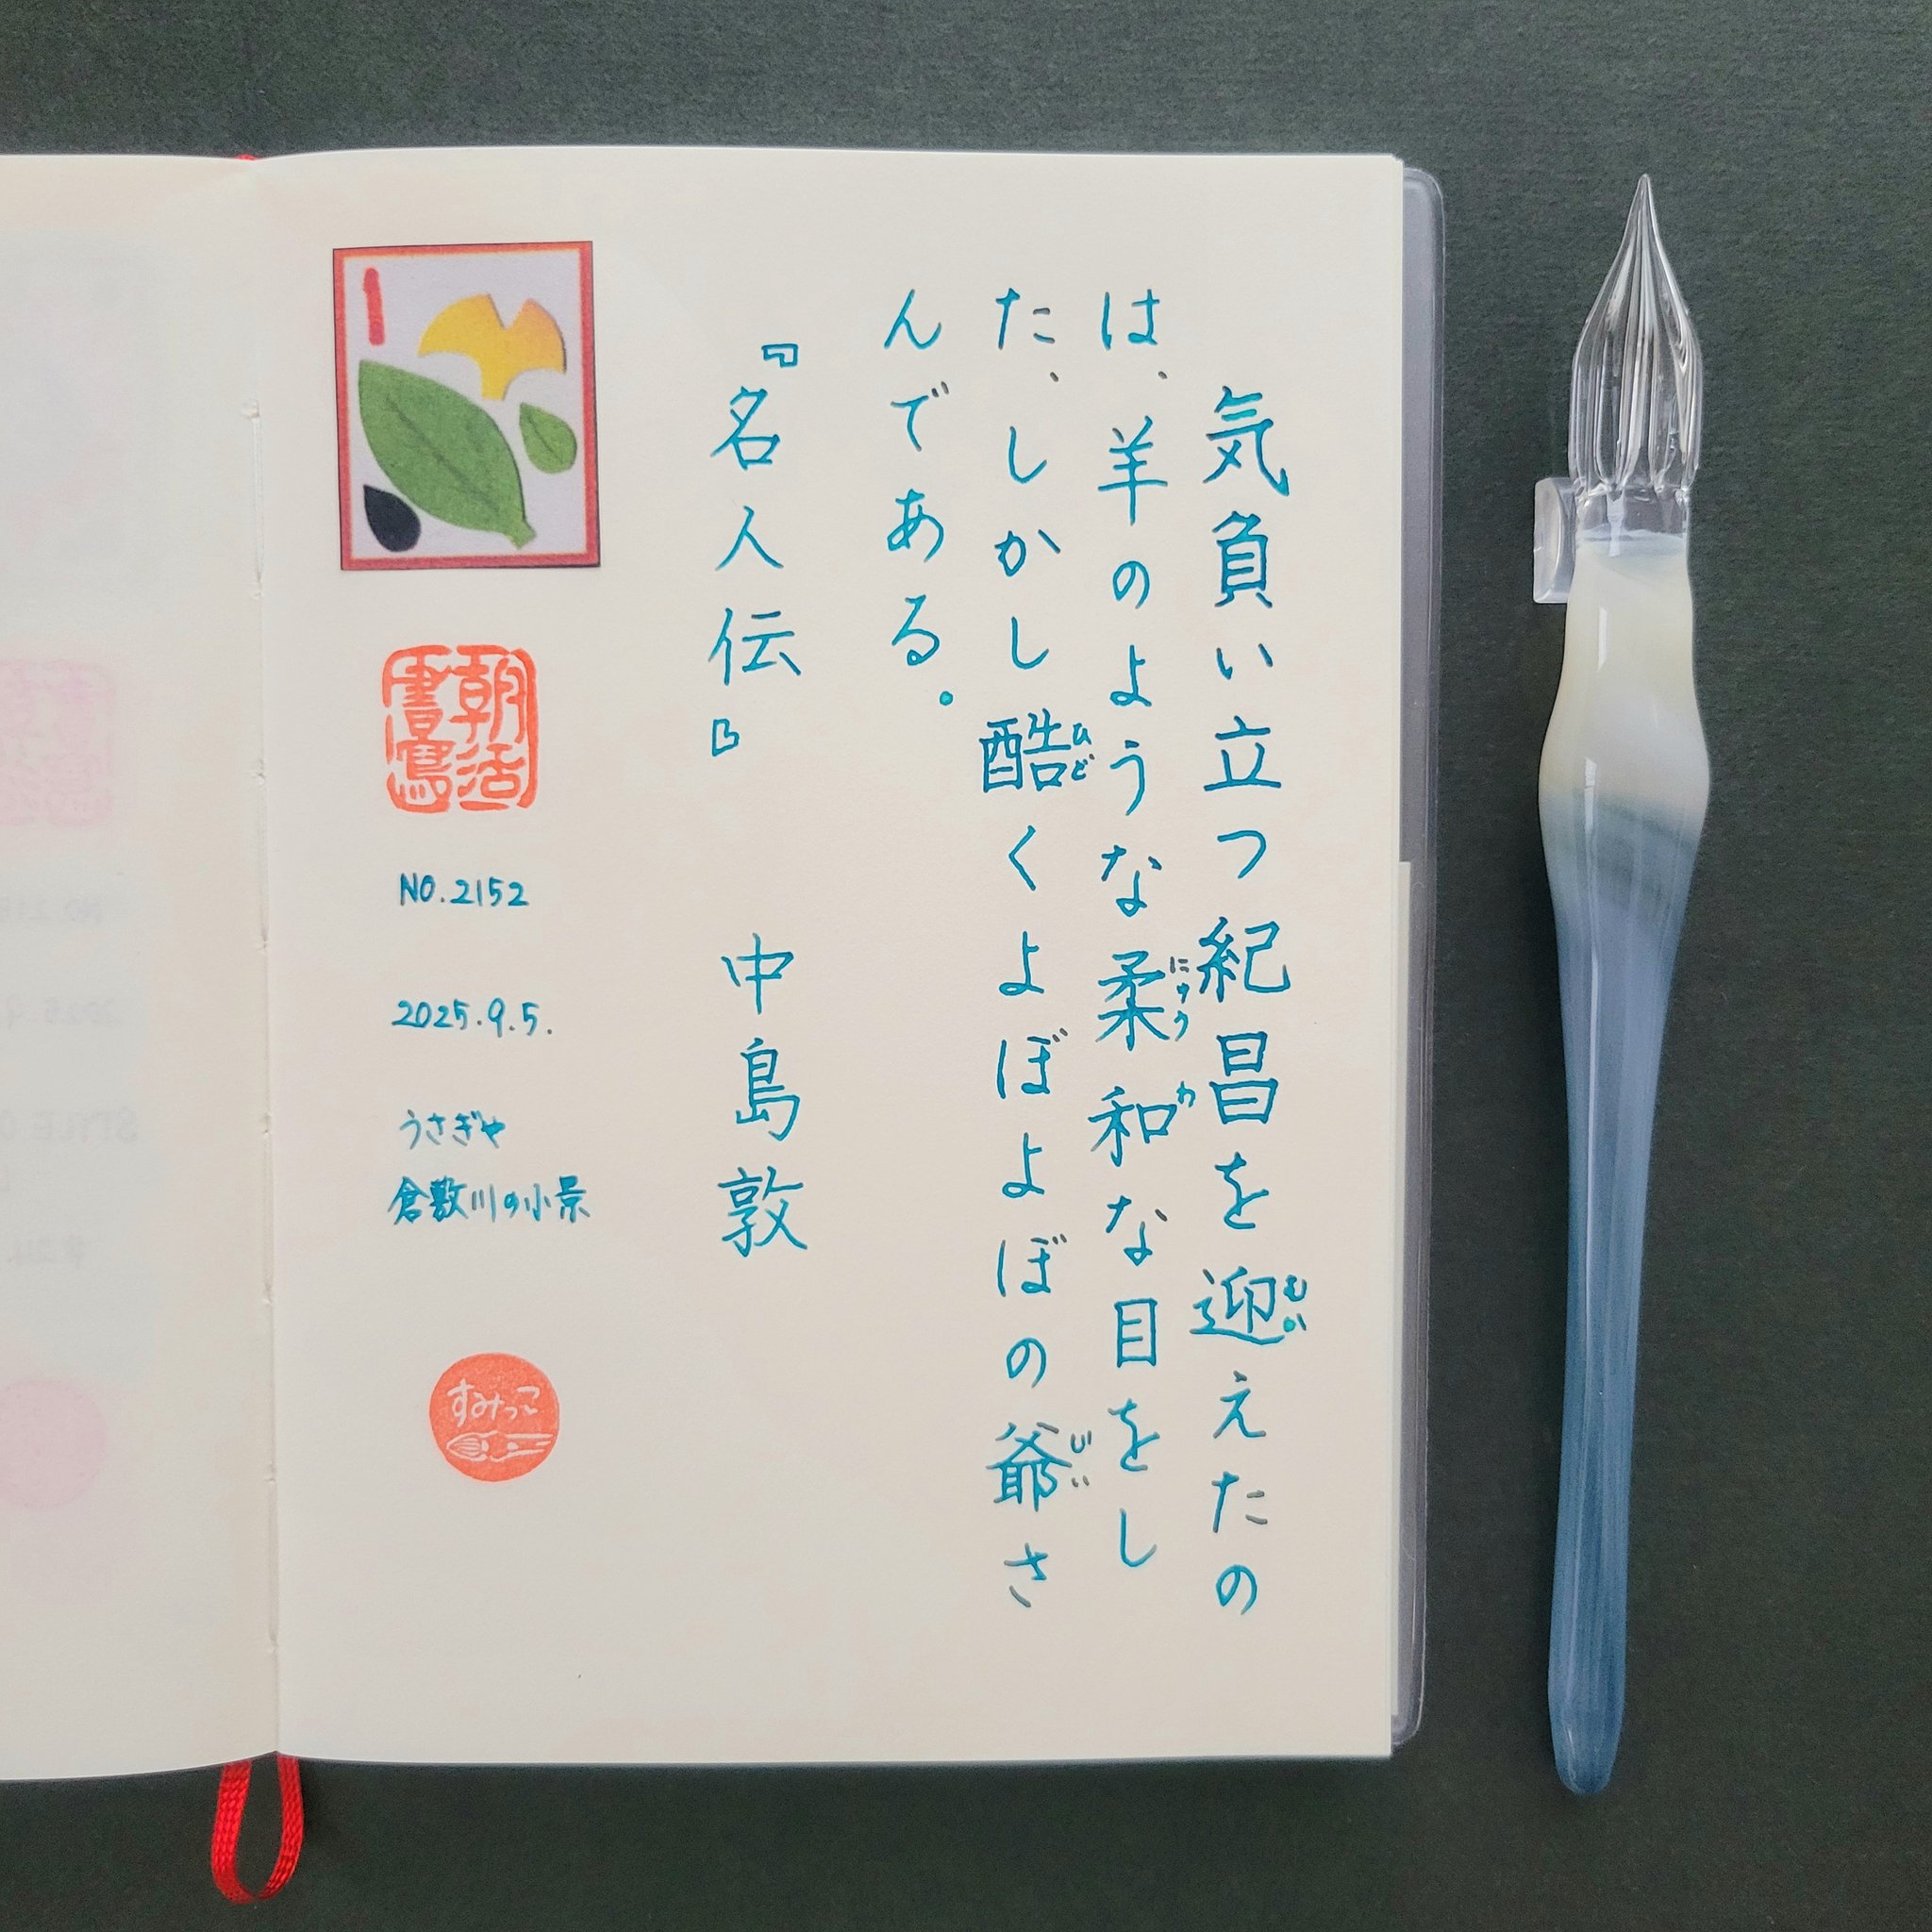 気負い立つ紀昌を迎えたの
は、羊のような柔和な目をし
た、しかし酷くよぼよぼの爺さ
んである。
『名人伝』 中島敦
むか
にゅうわ
ひど
じい
朝活
書写
NO.2152
2025.9.5.
うさぎや
倉敷川の小景
すみっこ